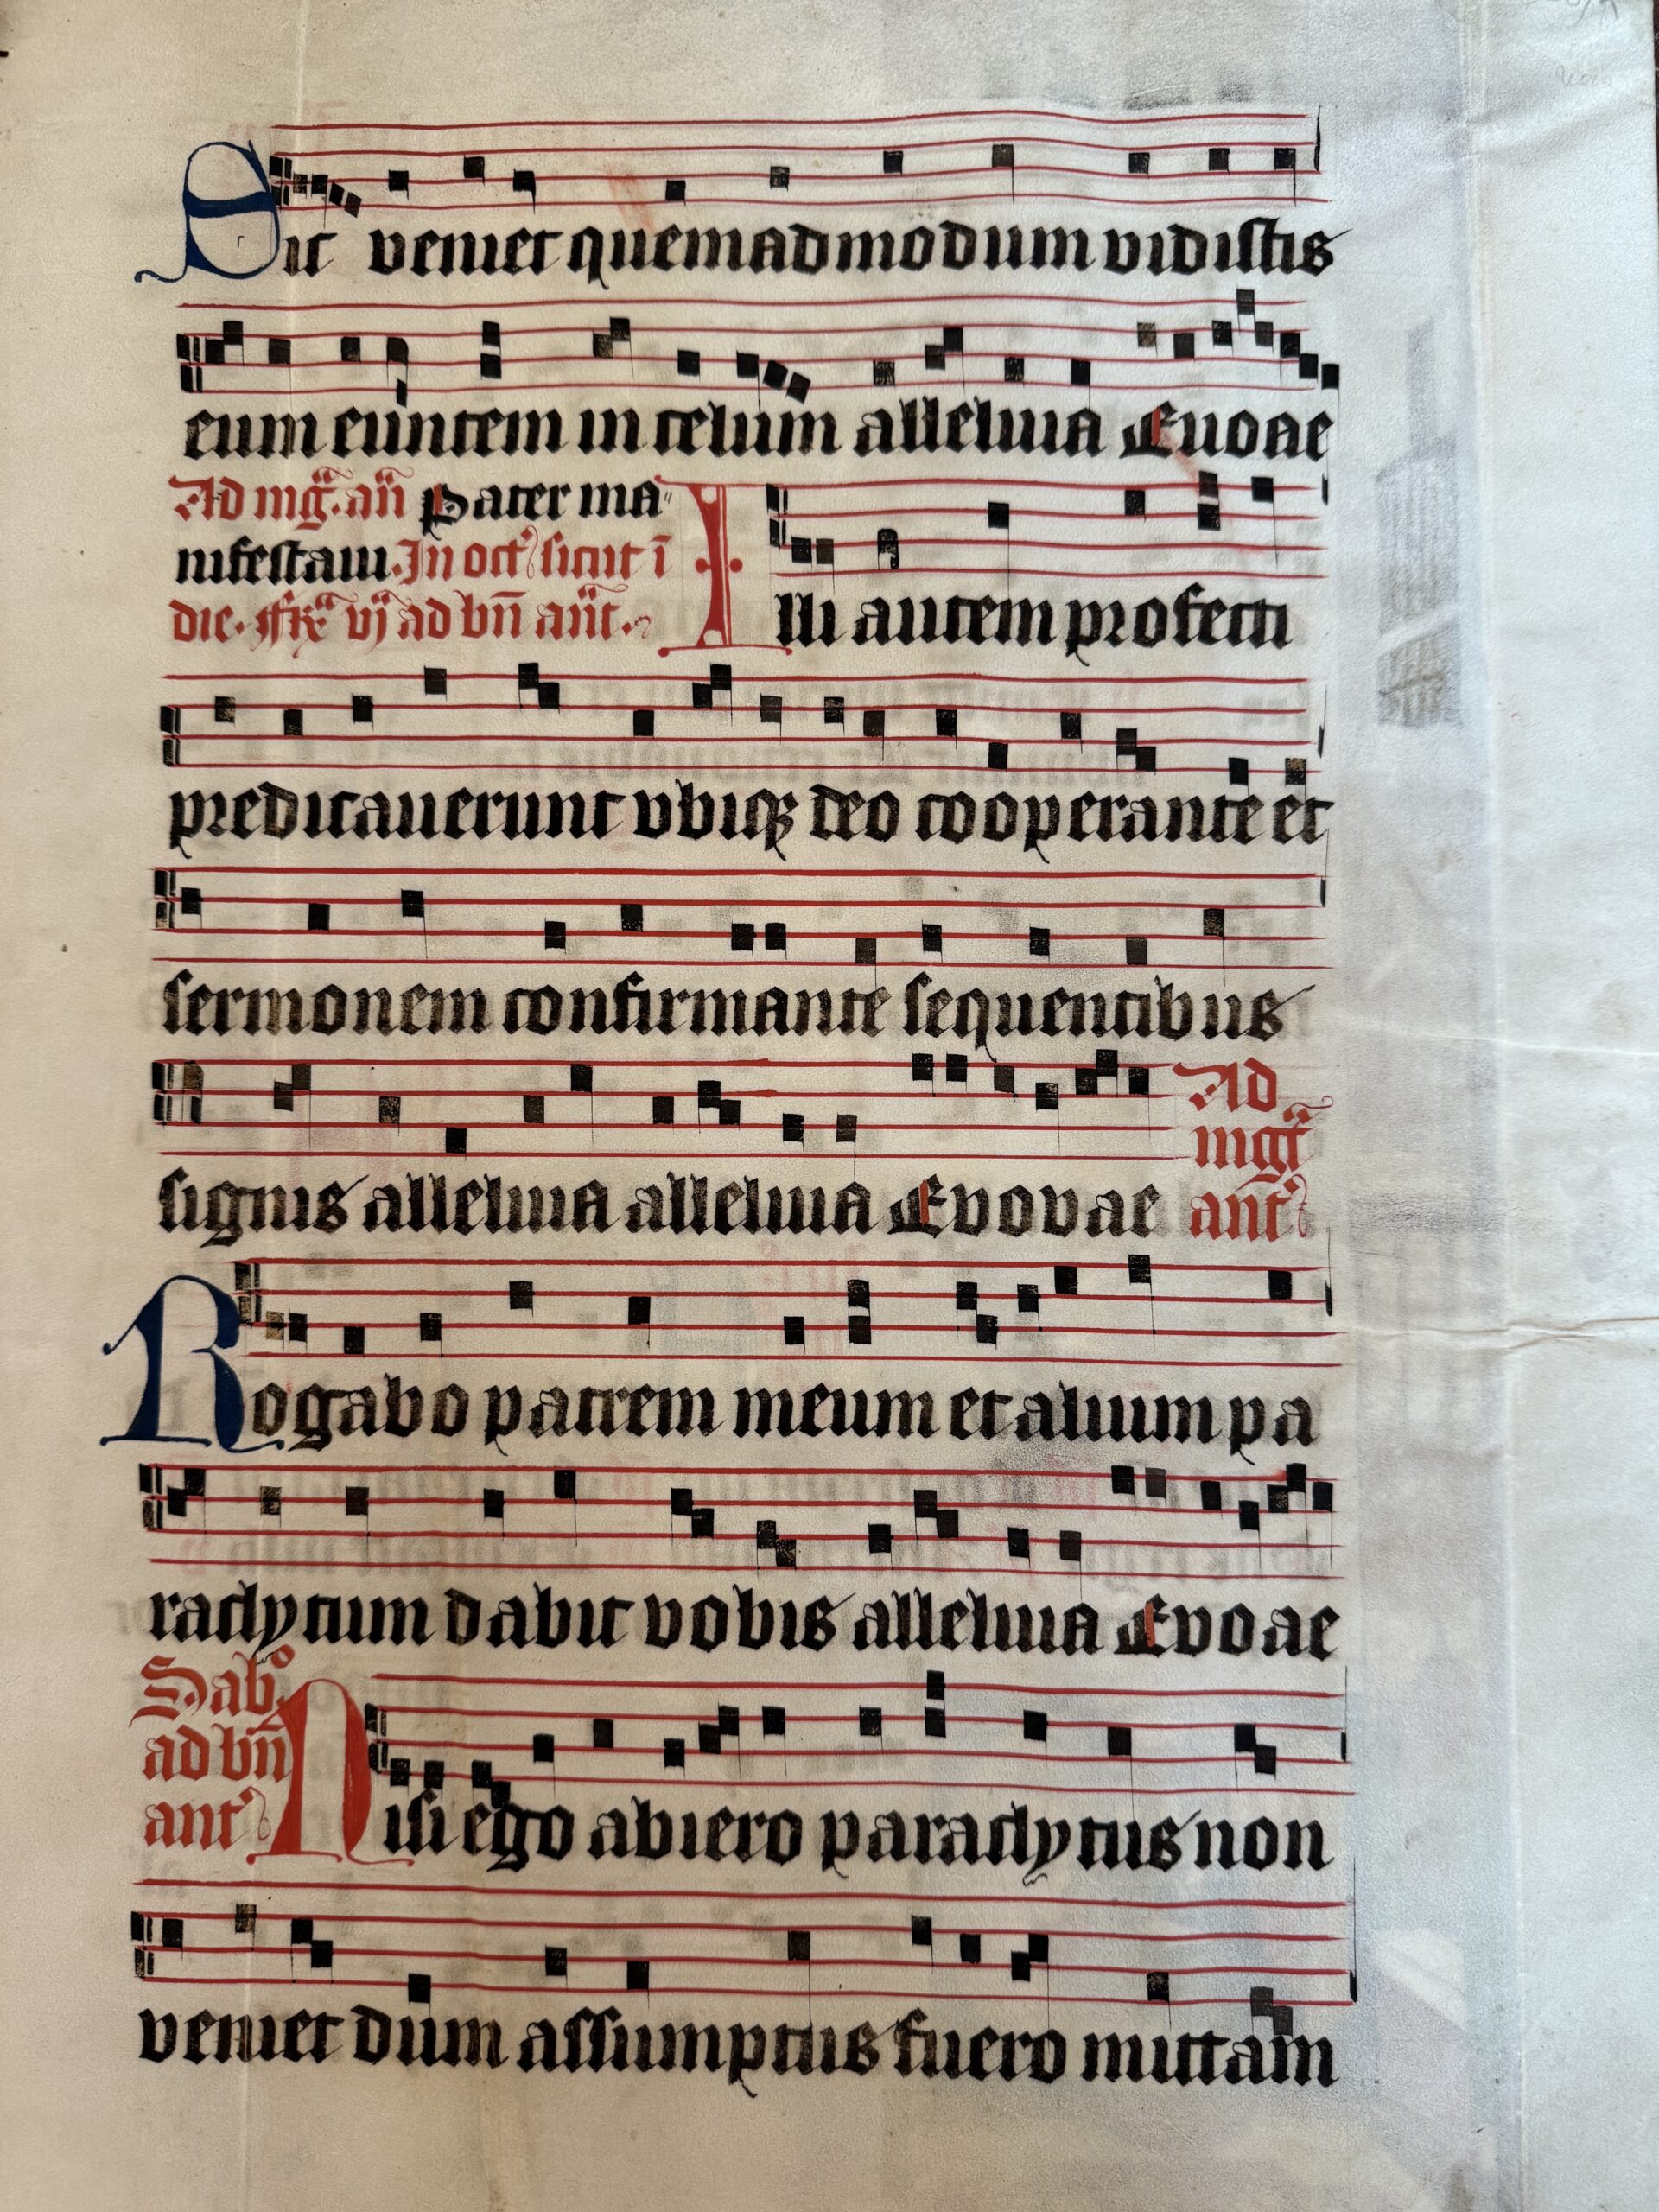 Sic veniet quemadmodum vidistis
eum euntem in celum alleluia Euoae
Ad mg̃. añ Pater ma
nifestaui. In oct sicut ī
die. ffr̃ vj ad bn̄ añt.
Illi autem profecti
predicauerunt vbiqꝫ deo cooperante et
sermonem confirmante sequentibus
signis alleluia alleluia Evovae
Ad
mgt̃
ant̃
Rogabo patrem meum et alium pa
raclytum dabit vobis alleluia Evoae
Sabº.
ad bn̄
ant
Nisi ego abiero paraclytus non
veniet dum assumptus fuero mittam